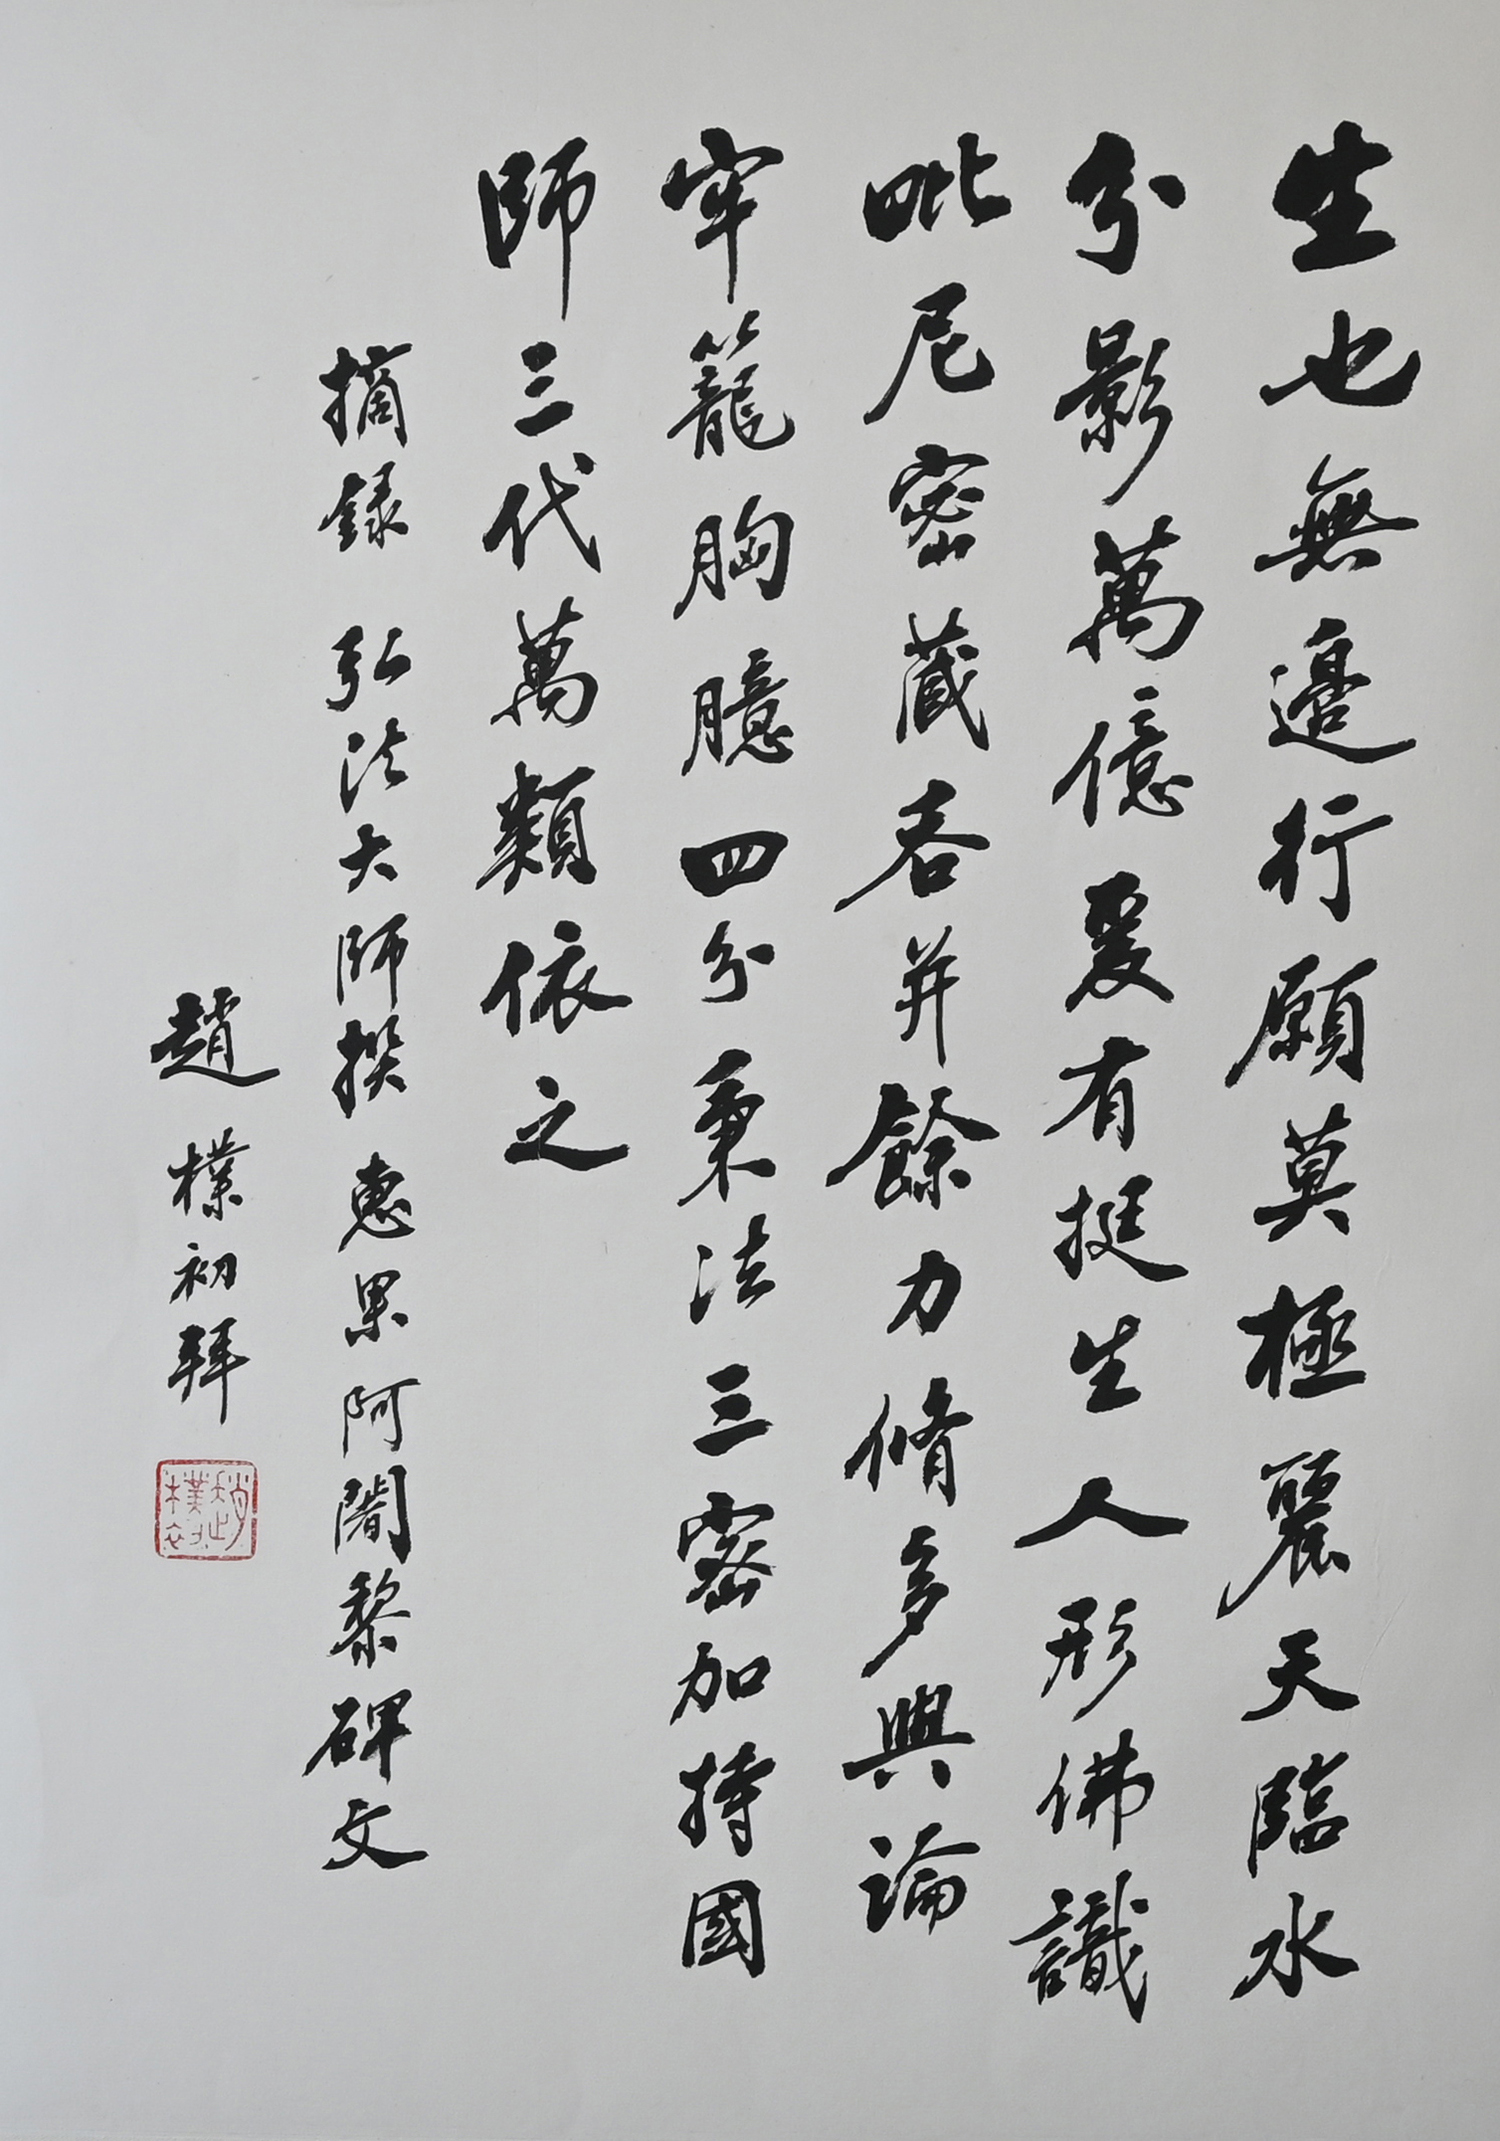 生也無邊行願莫極麗天臨水
分影萬億爰有挺生人形佛識
毗尼密藏吞并餘力脩多與論
牢籠胸臆四分秉法三密加持國
師三代萬類依之
摘錄 弘法大師撰 惠果阿闍黎碑文
趙樸初拜
趙樸初